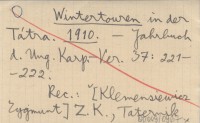 Wintertouren in der
Tátra. 1910. — Jahrbuch
d. Ung. Karp.-Ver. 37: 221-
-222.
Rec.: [Klemensiewicz
Zygmunt] Z. K., Taternik